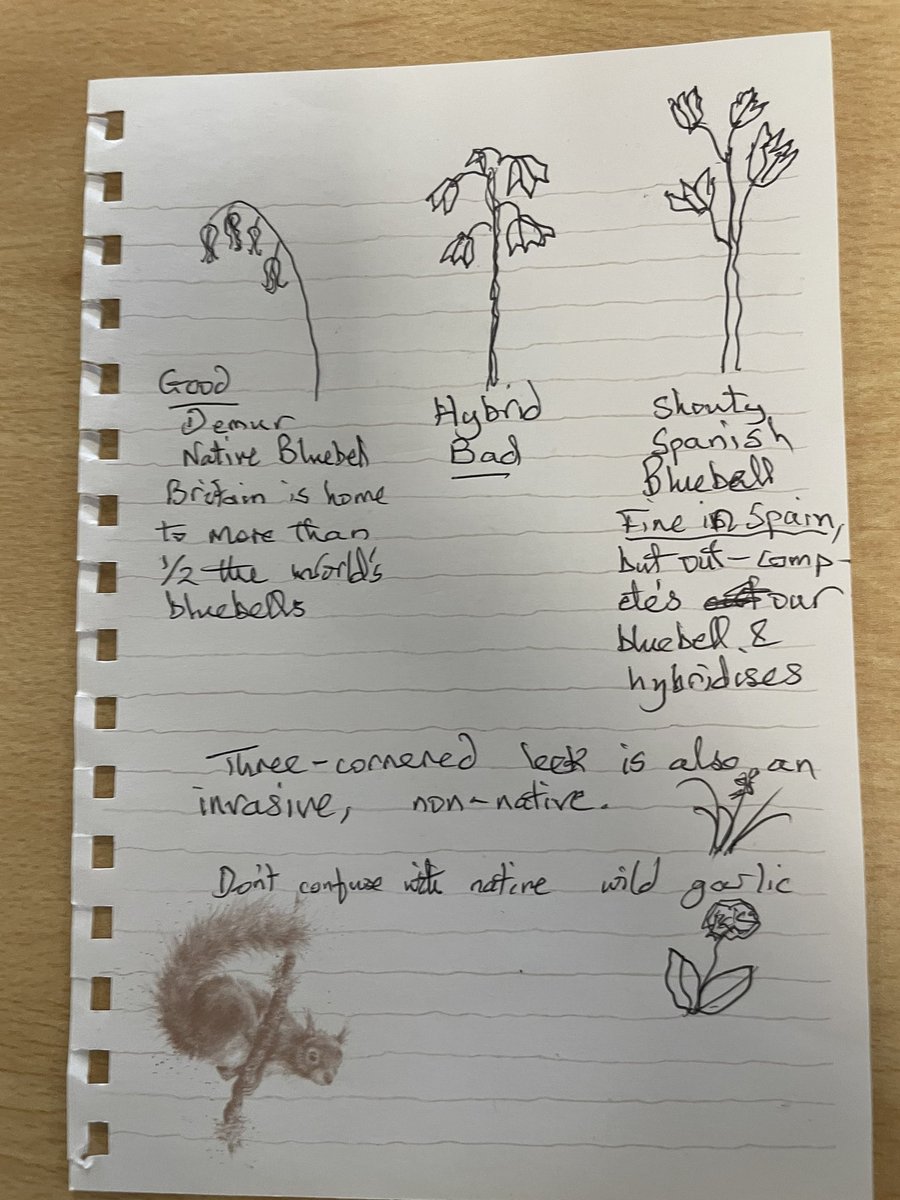 Good
Demur
Native Bluebell
Britain is home
to more than
1/2 the world's
bluebells
Hybrid
Bad
Shouty
Spanish
Bluebell
Fine in Spain,
but out-comp-
etes our
bluebell &
hybridises
Three-cornered leek is also an
invasive, non-native.
Don't confuse with native wild garlic